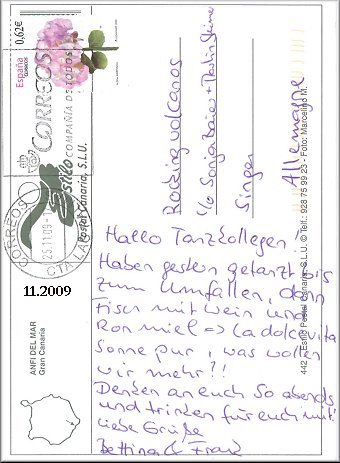 España
CORREOS
0,62€
CORREOS
COMPAÑÍA DE TODOS
Postal Canaria, S.L.U.
CORREOS
25 11 09
CTA LA
11.2009
ANFI DEL MAR
Gran Canaria
Rocking volcanos
c/o Sonja Baier +
Singen
Allemagne
442 - Estilo Postal Canaria, S.L.U. © Telf.: 928 75 99 23 - Foto: Marcelino M.
Hallo Tanzkollegen
Haben gestern getanzt bis
zum Umfallen, dann
Fisch mit Wein und
Ron miel => La dolce vita
Sonne pur, was wollen
wir mehr?!!
Denken an euch so abends
und trinken für euch mit!
Liebe Grüße
Bettina & Franz